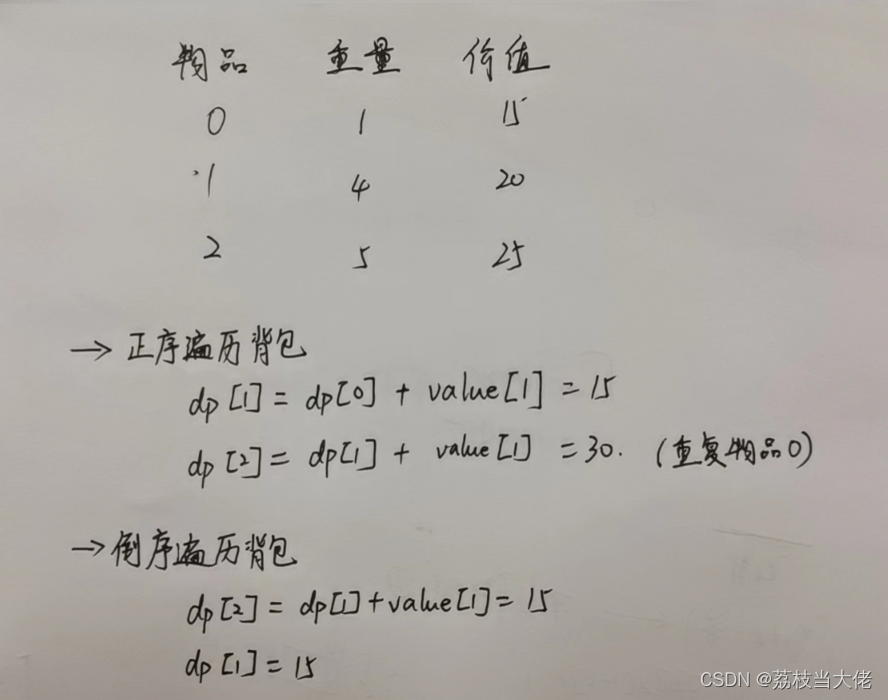 物品 重量 价值
0 1 15
1 4 20
2 5 25
→ 正序遍历背包
dp[1] = dp[0] + value[1] = 15
dp[2] = dp[1] + value[1] = 30. (重复物品0)
→ 倒序遍历背包
dp[2] = dp[1]+value[1] = 15
dp[1] = 15
CSDN @荔枝当大佬